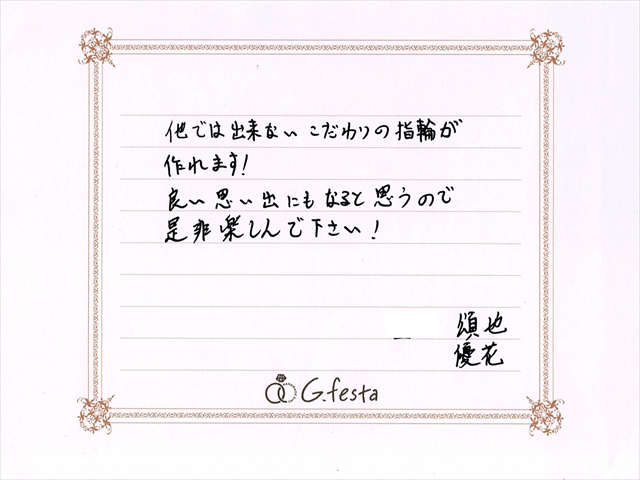 他では出来ない こだわりの指輪が
作れます!
良い思い出にもなると思うので
是非楽しんで下さい!
頌也
優花
G.festa